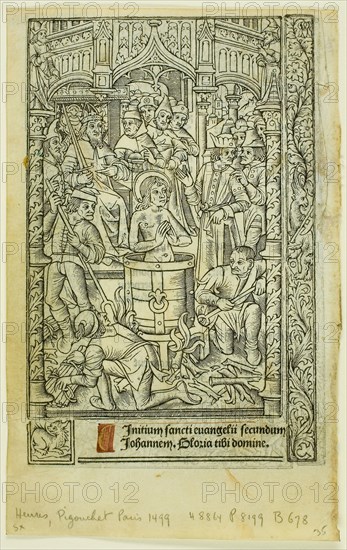 Initium sancti evangelii secundum
Johannem. Gloria tibi domine.
Heures, Pigouchet Paris 1499 48864 P 8199 B 678
35